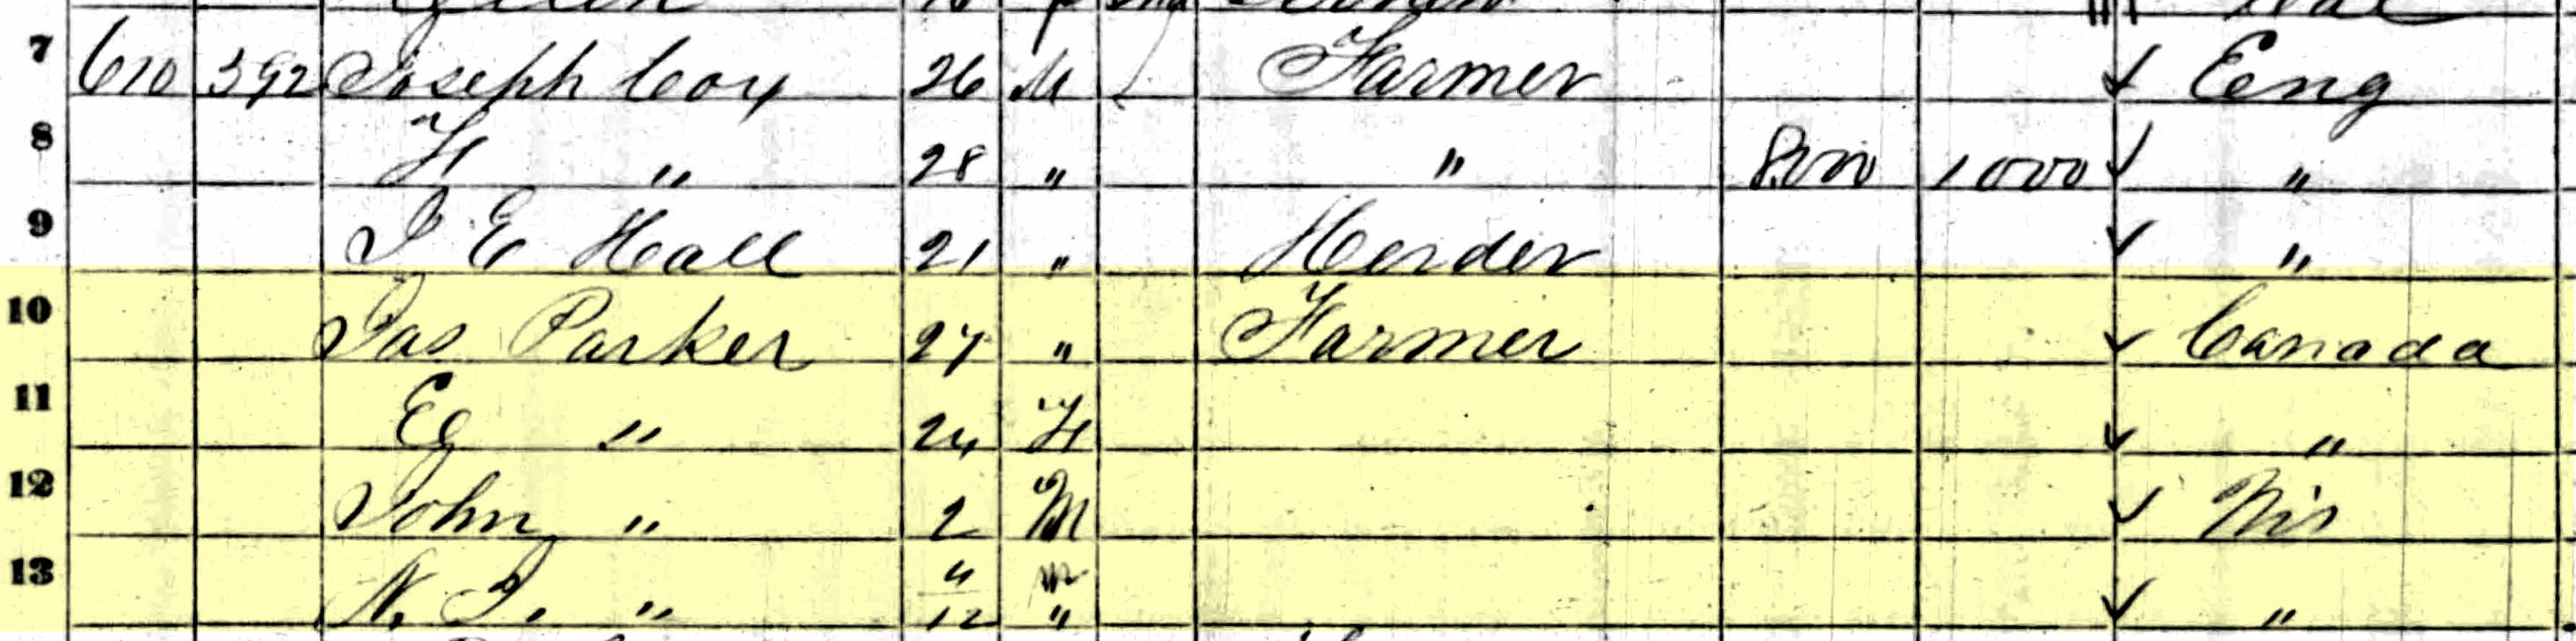 7 610 392 Joseph Cox 26 M Farmer ✓ Eng
8 H " 28 " " 8000 1000 ✓ "
9 J E Hall 21 " Herder ✓ "
10 Jas Parker 27 " Farmer ✓ Canada
11 " 24 F ✓ "
12 John " 2 M ✓ Wis
13 " /12 M " ✓ "